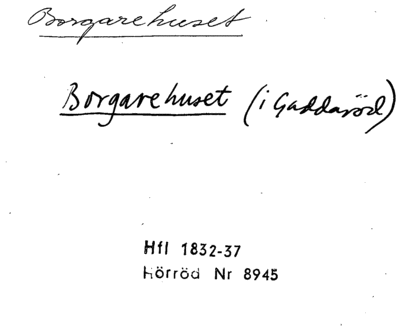 Borgarehuset
Borgarehuset (i Gaddaröd)
Hfl 1832-37
Hörröd Nr 8945